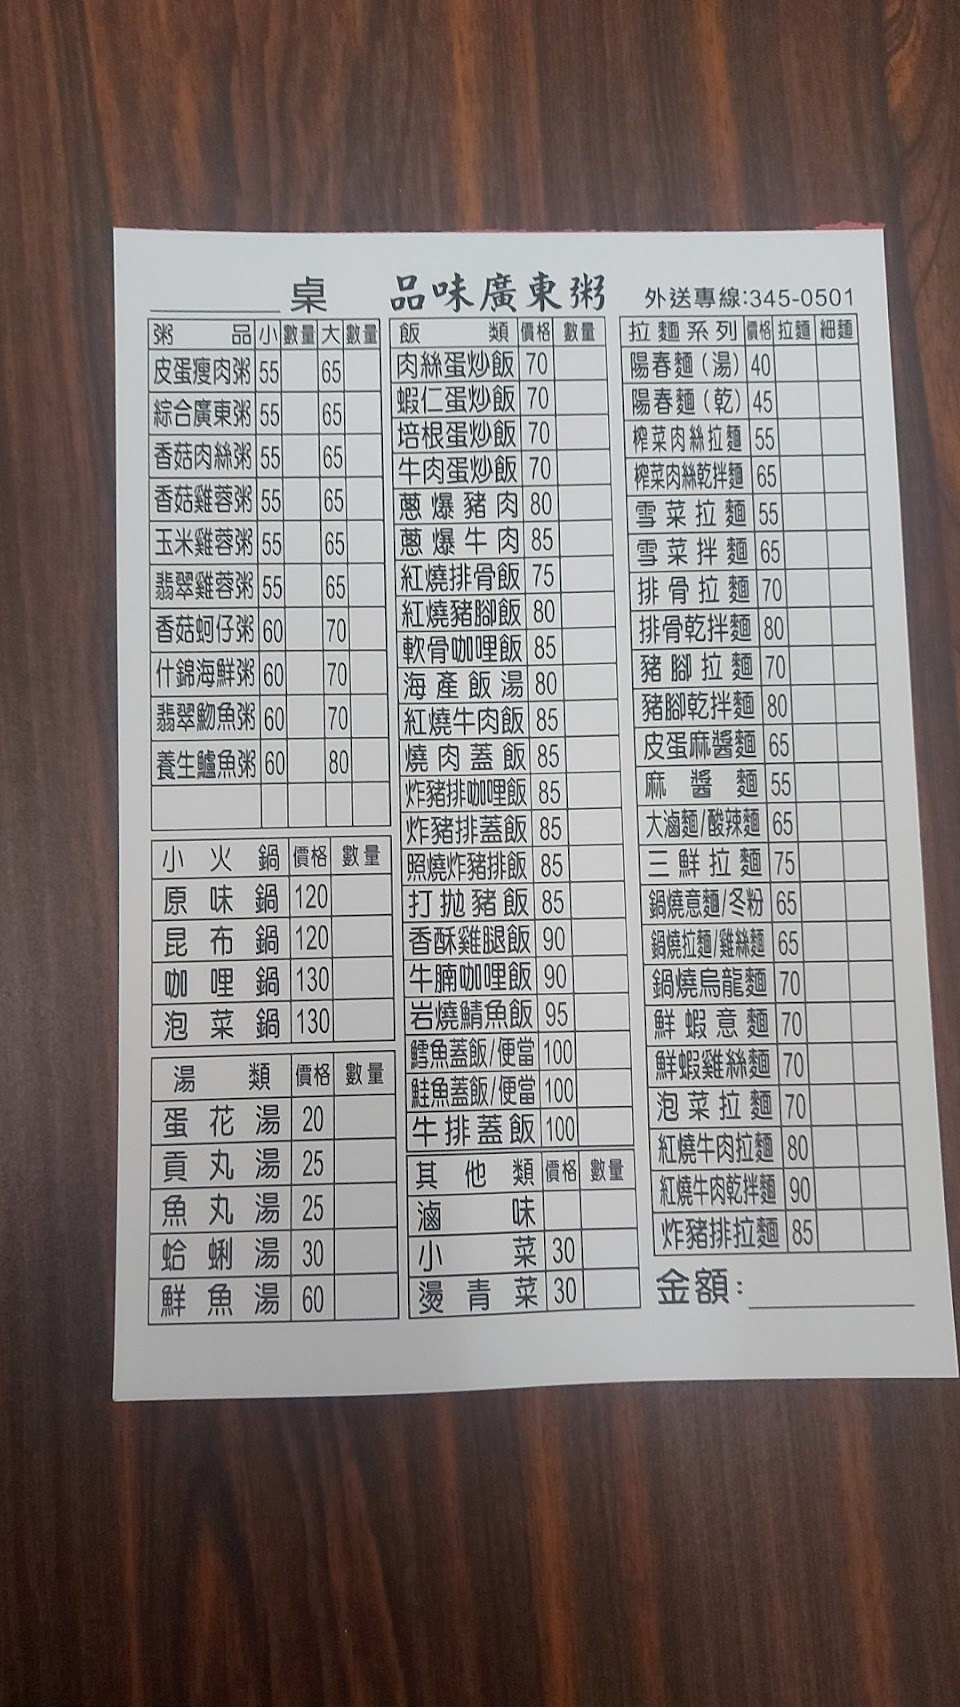 桌 品味廣東粥 外送專線:345-0501
粥品 小 數量 大 數量
皮蛋瘦肉粥 55 65
綜合廣東粥 55 65
香菇肉絲粥 55 65
香菇雞蓉粥 55 65
玉米雞蓉粥 55 65
翡翠雞蓉粥 55 65
香菇蚵仔粥 60 70
什錦海鮮粥 60 70
翡翠魩魚粥 60 70
養生鱸魚粥 60 80
小火鍋 價格 數量
原味鍋 120
昆布鍋 120
咖哩鍋 130
泡菜鍋 130
湯類 價格 數量
蛋花湯 20
貢丸湯 25
魚丸湯 25
蛤蜊湯 30
鮮魚湯 60
飯類 價格 數量
肉絲蛋炒飯 70
蝦仁蛋炒飯 70
培根蛋炒飯 70
牛肉蛋炒飯 70
蔥爆豬肉 80
蔥爆牛肉 85
紅燒排骨飯 75
紅燒豬腳飯 80
軟骨咖哩飯 85
海產飯湯 80
紅燒牛肉飯 85
燒肉蓋飯 85
炸豬排咖哩飯 85
炸豬排蓋飯 85
照燒炸豬排飯 85
打拋豬飯 85
香酥雞腿飯 90
牛腩咖哩飯 90
岩燒鯖魚飯 95
鱈魚蓋飯/便當 100
鮭魚蓋飯/便當 100
牛排蓋飯 100
其他類 價格 數量
滷味
小菜 30
燙青菜 30
拉麵系列 價格 拉麵 細麵
陽春麵(湯) 40
陽春麵(乾) 45
榨菜肉絲拉麵 55
榨菜肉絲乾拌麵 65
雪菜拉麵 55
雪菜拌麵 65
排骨拉麵 70
排骨乾拌麵 80
豬腳拉麵 70
豬腳乾拌麵 80
皮蛋麻醬麵 65
麻醬麵 55
大滷麵/酸辣麵 65
三鮮拉麵 75
鍋燒意麵/冬粉 65
鍋燒拉麵/雞絲麵 65
鍋燒烏龍麵 70
鮮蝦意麵 70
鮮蝦雞絲麵 70
泡菜拉麵 70
紅燒牛肉拉麵 80
紅燒牛肉乾拌麵 90
炸豬排拉麵 85
金額: